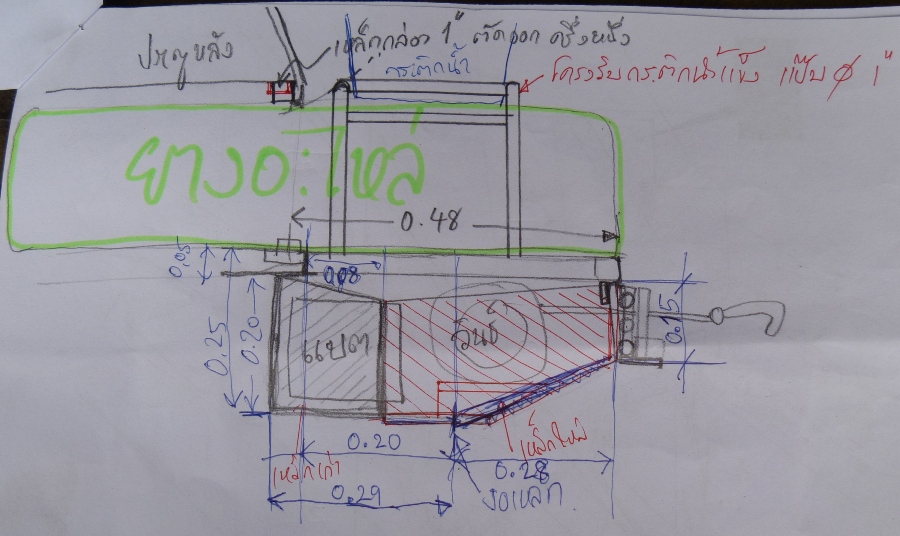 เหล็กกล่อง 1" ตัดออก ครึ่งหนึ่ง
ประตูหลัง
กระติกน้ำ
โครงรับกระติกน้ำแข็ง แป๊บ Ø 1"
ยางอะไหล่
0.48
0.05
0.08
0.25
0.20
แบต
วินช์
0.15
0.20
เหล็กใหม่
เหล็กเก่า
0.28
0.29
งอเหล็ก